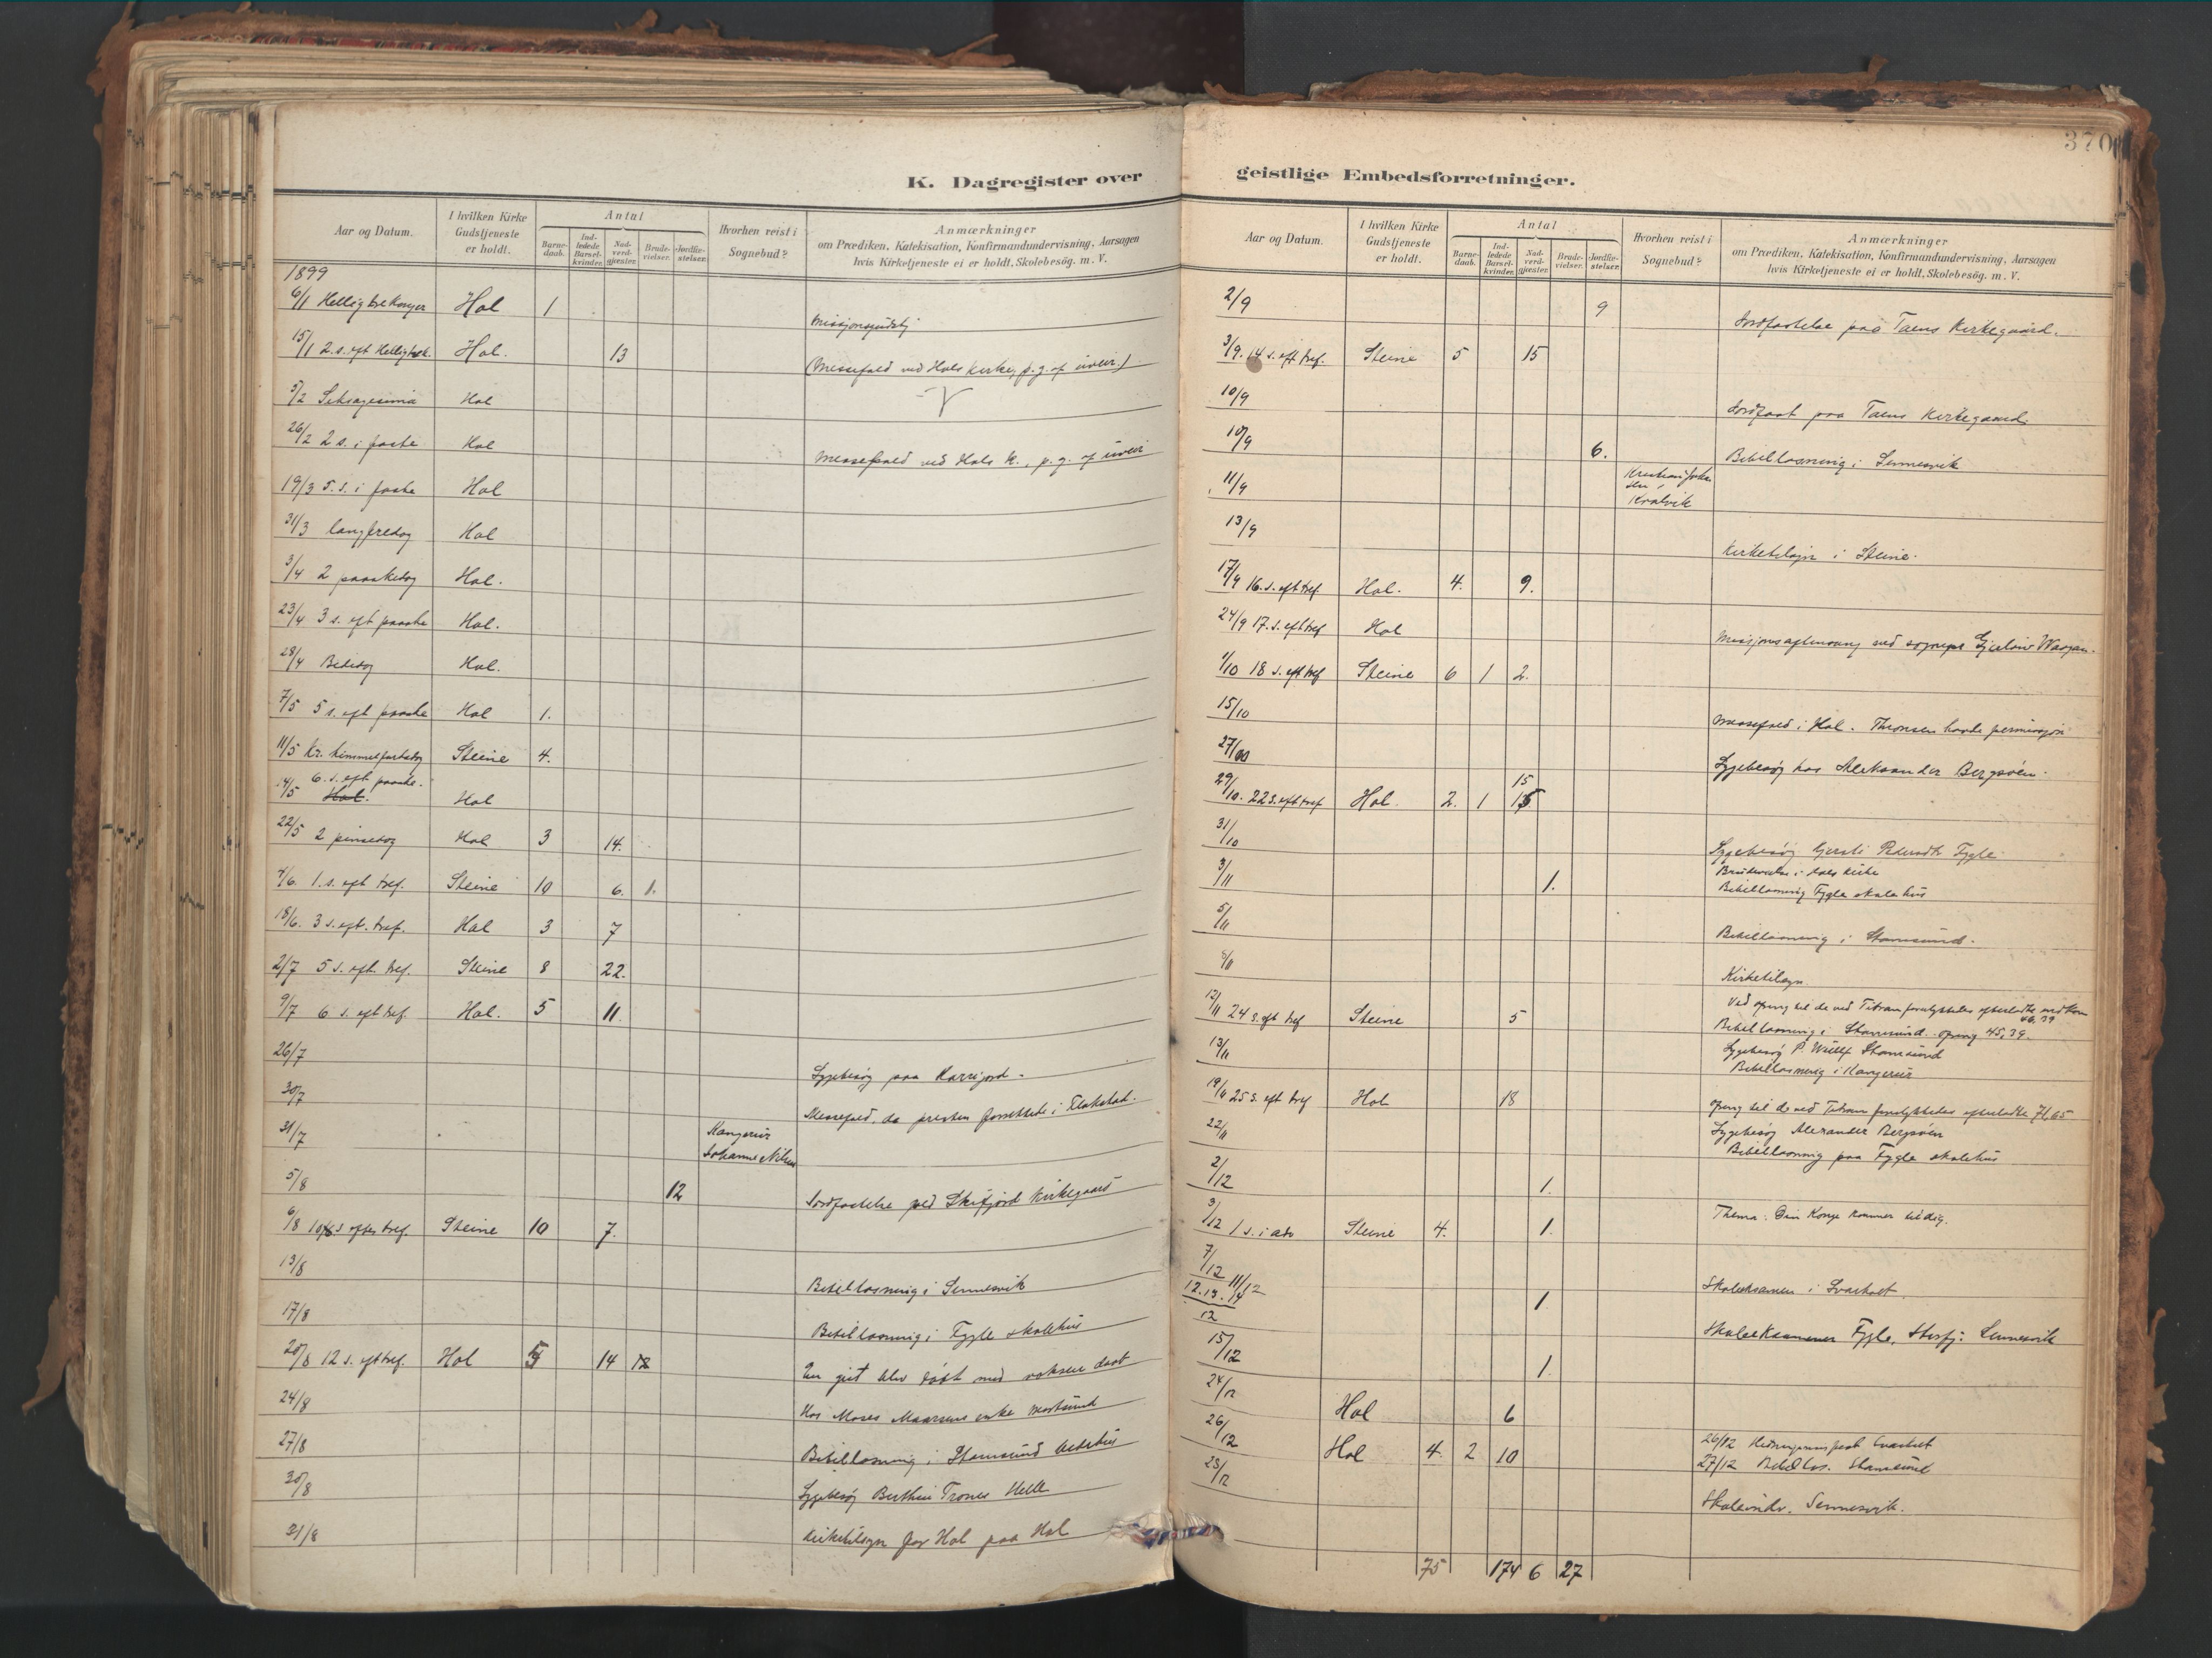 K. Dagregister over
Aar og Datum. I hvilken Kirke Gudstjeneste er holdt. Antal Barnedaab. Indledede Barselkvinder. Nadverdgjæster. Brudevielser. Jordfæstelser. Hvorhen reist i Sognebud? Anmærkninger om Prædiken, Katekisation, Konfirmandundervisning, Aarsagen hvis Kirketjeneste ei er holdt, Skolebesög. m. V.
1899
6/1 Helligtrekonger Hol 1 Missjonsgudstj
15/1 2. s. eft Helligtrek. Hol. 13 (Messefald ved Hols kirke, p. g. af uveir.)
5/2 Seksagesima Hol
26/2 2 s. i faste Hol Messefald ved Hols K., p. g. af uveir
19/3 5. s. i faste Hol
31/3 langfredag Hol
3/4 2 paaskedag Hol.
23/4 3 s. eft paaske Hol.
28/4 Bededag Hol.
7/5 5 s. eft paaske Hol 1.
11/5 Kr. himmelfartsdag Steine 4.
14/5 6. s. eft paaske. Hol. Hol
22/5 2 pinsedag Hol 3 14.
4/6. 1. s. eft tref. Steine 10 6. 1.
18/6. 3 s. eft. tref. Hol 3 7
2/7 5 s. eft. tref. Steine 8 22.
9/7 6 s. eft tref. Hol. 5 11.
26/7 Sygebesøg paa
30/7 Messefald, da presten forrettede i Flakstad.
31/7 Kangerur Johanne
5/8 12 Jordfæstelse ved Skifjord Kirkegaard
6/8 10 s. efter tref. Steine 10 7.
13/8 Bibellæsning i Sennesvik
17/8 Bibellæsning i Fygle skolehus
20/8 12 s. eft tref. Hol 5 14 12 En gut blev døbt med voksen daab
24/8 Hos Moses enke Mortsund
27/8 Bibellæsning i Stamsund bedehus
30/8 Sygebesøg Helle
31/8 Kirketilsyn for Hol paa Hol
370
geistlige Embedsforretninger.
Aar og Datum. I hvilken Kirke Gudstjeneste er holdt. Antal Barnedaab. Indledede Barselkvinder. Nadverdgjæster. Brudevielser. Jordfæstelser. Hvorhen reist i Sognebud? Anmærkninger om Prædiken, Katekisation, Konfirmandundervisning, Aarsagen hvis Kirketjeneste ei er holdt, Skolebesög. m. V.
2/9 9 Jordfæstelse paa Taens Kirkegaard.
3/9. 14 s. eft. tref. Steine 5 15
10/9 Jordfæst paa Taens Kirkegaard.
10/9 6. Bibellæsning i Sennesvik
11/9
13/9 Kirketilsyn i Steine.
17/9 16. s. eft tref. Hol. 4. 9.
24/9 17. s. eft tref Hol Missjonsaftensang ved sognepr
1/10 18 s. eft tref Steine 6 1 2.
15/10 Messefald i Hol. Thronsen havde permissjon
27/10 Sygebesøg hos Aleksander Bergsøen.
29/10. 22 s. eft tref Hol. 2. 1 15 15
31/10 Sygebesøg Fygle
3/11 1. Brudevielse i Hols kirke Bibellæsning Fygle skolehus
5/11 Bibellæsning i Stamsund.
8/11 Kirketilsyn.
12/11 24 s. eft tref Steine 5 Ved ofring til de ved Titranforulykkelses efterladte indkom 46,39
Bibellæsning i Stamsund. ofring 45,39.
13/11 Sygebesøg P. Wulff Stamsund
Bibellæsning i Kangerur
19/11 25 s. eft tref Hol 18 ofring til de ved Titran forulykkedes efterladte 71,65
22/11 Sygebesøg Alexander Bergsøen
Bibellæsning paa Fygle skolehus
2/12 1.
3/12 1 s. i adv Steine 4. 1. Thema: Din Konge kommer til dig.
7/12 11/12 Skoleksamen i Svarholt
12. 13. 14/12 1 Skoleeksamener Fygle, Sennesvik
15/12 1.
24/12 Hol 6
26/12 Hol 4. 2 10 26/12 Svarholt
27/12 Bibellæs. Stamsund
28/12 Skoleundv. Sennesvik.
75 174 6 27